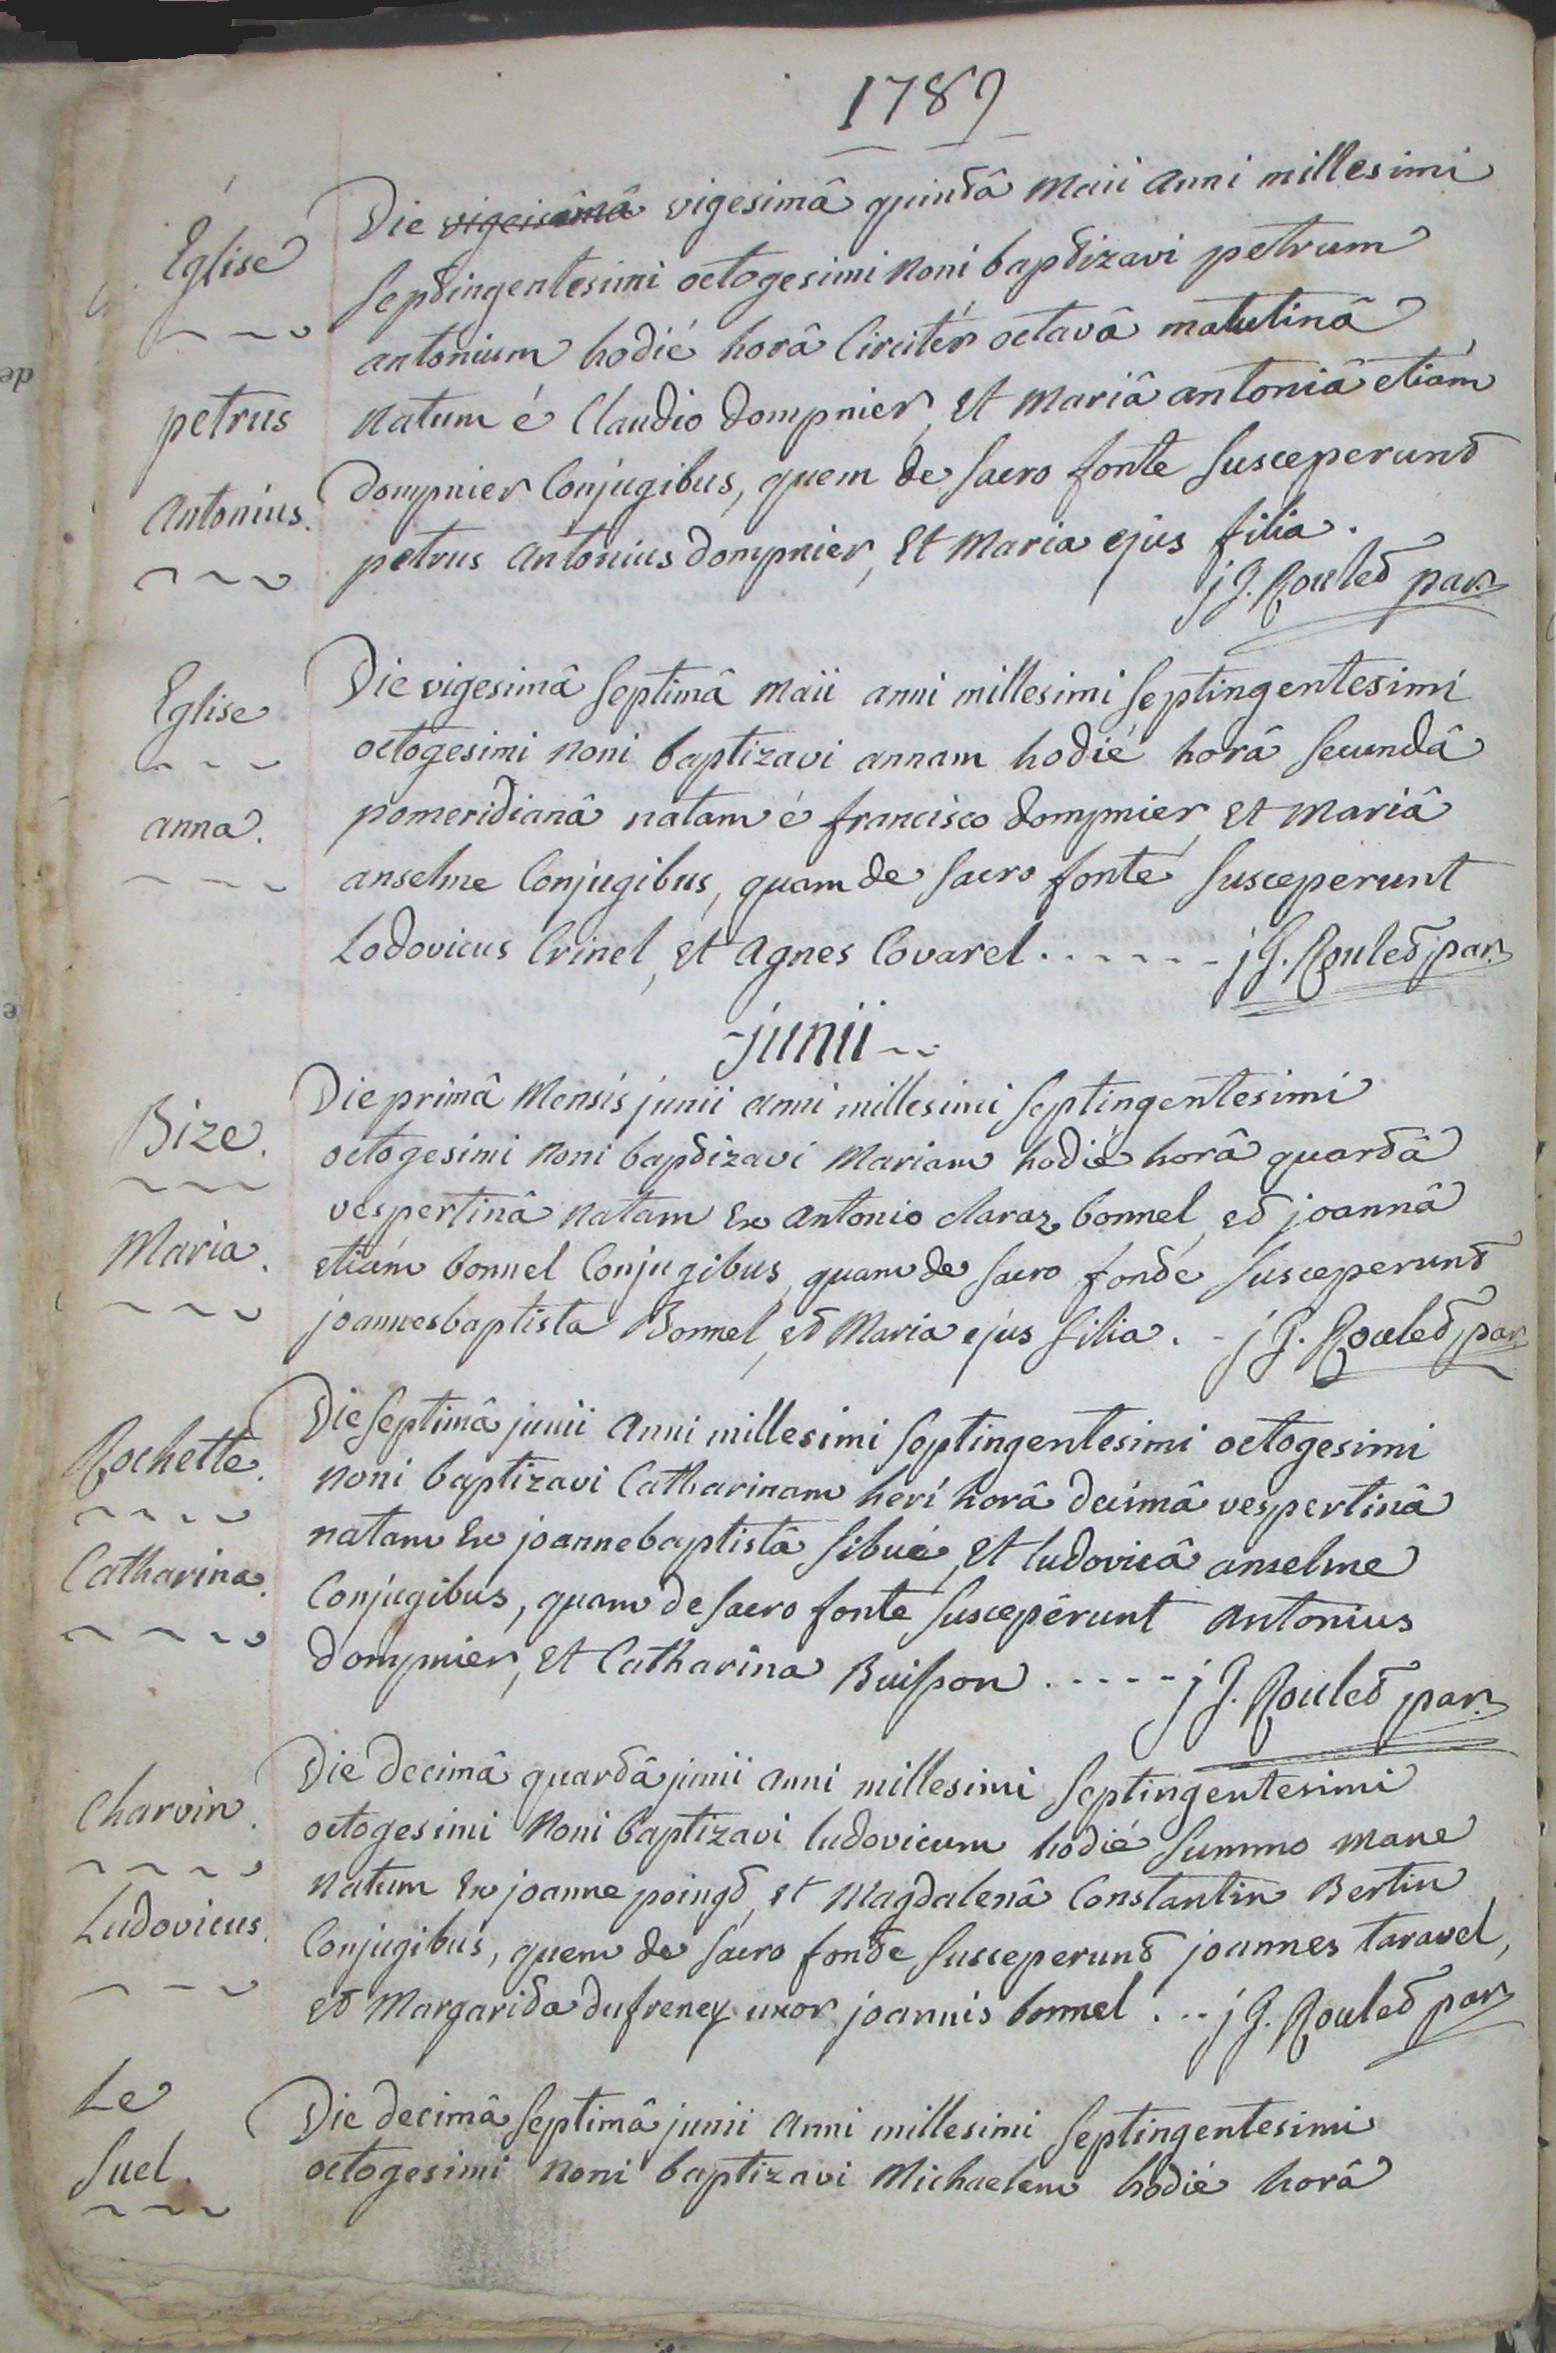 1789
Eglise
petrus
Antonius.
Die vigesimâ quintâ Maii anni millesimi
septingentesimi octogesimi noni baptizavi petrum
antonium hodié horâ circitér octavâ matutinâ
natum é Claudio Dompnier, et Mariâ antoniâ etiám
Dompnier Conjugibus, quem de sacro fonte susceperunt
petrus antonius Dompnier, et Maria ejus filia.
j J. Roulet par.
Eglise
anna.
Die vigesimâ septimâ maii anni millesimi septingentesimi
octogesimi noni baptizavi annam hodié horâ secundâ
pomeridianâ natam é francisco Dompnier, et Mariâ
anselme Conjugibus, quam de sacro fonte susceperunt
Lodovicus Crinel, et Agnes Covarel . - - - - - - j J. Roulet par.
junii
Bize.
Maria.
Die primâ Mensis junii anni millesimi septingentesimi
octogesimi noni baptizavi Mariam hodié horâ quartâ
vespertinâ natam ex Antonio claraz bonnel, et joannâ
etiám bonnel Conjugibus, quam de sacro fonte susceperunt
joannesbaptista Bonnel, et Maria ejus filia. - j J. Roulet par.
Rochette.
Catharina.
Die septimâ junii anni millesimi septingentesimi octogesimi
noni baptizavi Catharinam heri horâ decimâ vespertinâ
natam ex joannebaptistâ sibué, et ludovicâ anselme
Conjugibus, quam de sacro fonte susceperunt antonius
Dompnier, et Catharina Buisson . - - - - - j J. Roulet par.
Charvin.
Ludovicus.
Die decimâ quartâ junii anni millesimi septingentesimi
octogesimi noni baptizavi ludovicum hodié summo mane
natum ex joanne poingt, et Magdalenâ Constantin Bertin
Conjugibus, quem de sacro fonte susceperunt joannes taravel,
et Margarita dufreney uxor joannis bonnel . - - j J. Roulet par.
Le
suel.
Die decimâ septimâ junii anni millesimi septingentesimi
octogesimi noni baptizavi Michaelem hodié horâ